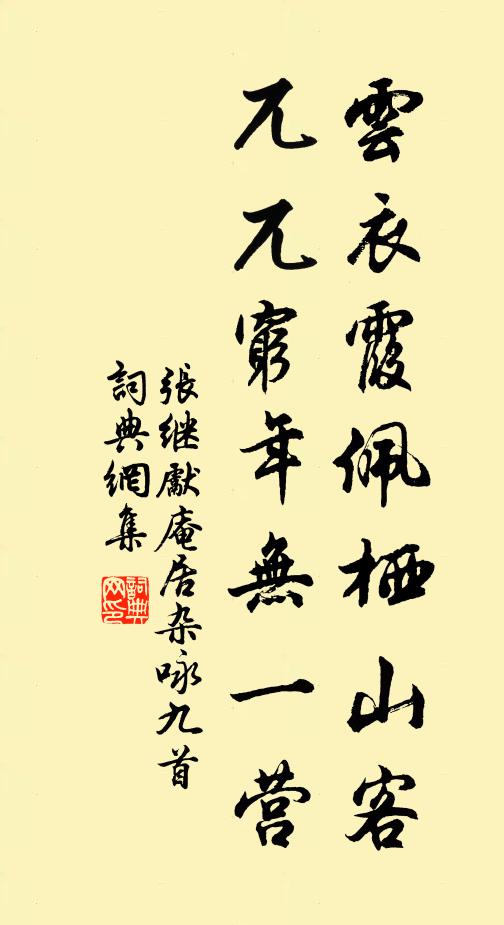 雲衣霞佩栖山客
兀兀窮年無一营
張继獻庵居杂咏九首
詞典網集
詞典网印